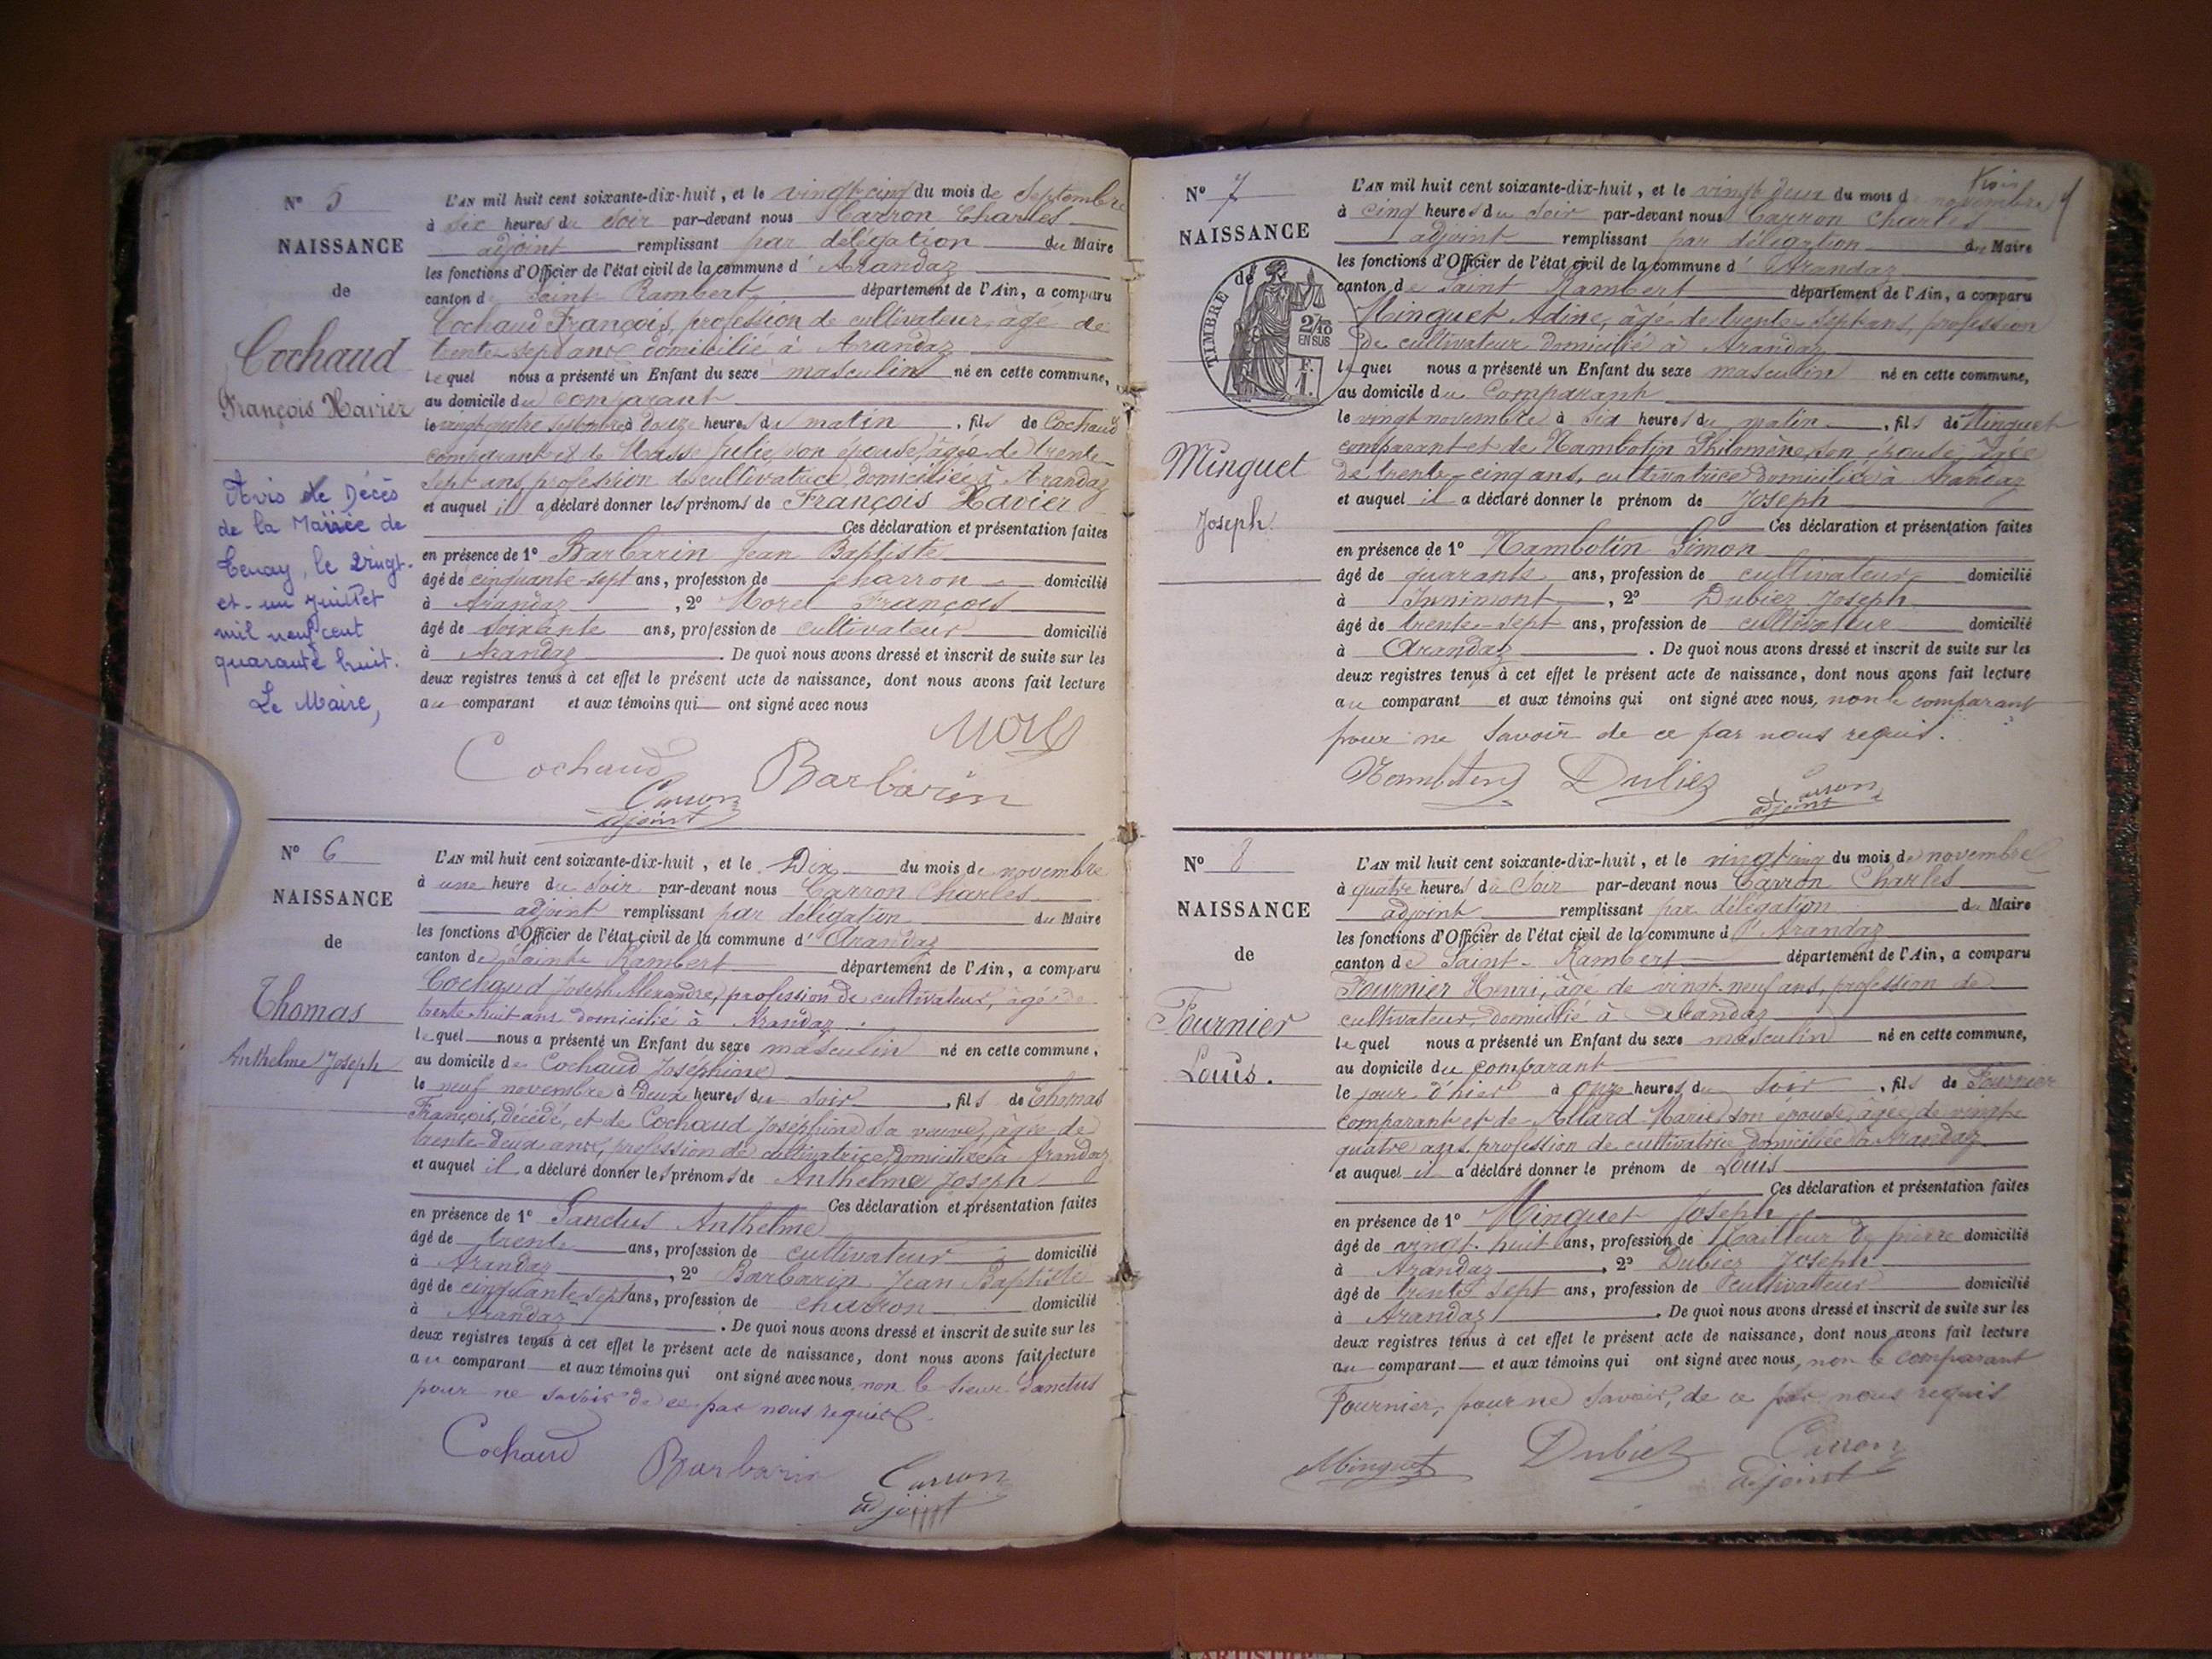 N° 5
NAISSANCE
de
Cochaud
François Xavier
Avis de Décès
de la Mairie de
Tenay, le vingt-
et-un juillet
mil neuf cent
quarante huit.
Le Maire,
L'AN mil huit cent soixante-dix-huit, et le vingt cinq du mois de Septembre
à six heures du soir par-devant nous Carron Charles
adjoint remplissant par délégation du Maire
les fonctions d'Officier de l'état civil de la commune d'Arandaz
canton de Saint Rambert département de l'Ain, a comparu
Cochaud François, profession de cultivateur, âgé de
trente sept ans domicilié à Arandaz
lequel nous a présenté un Enfant du sexe masculin né en cette commune,
au domicile du comparant
le vingt quatre septembre à douze heures du matin, fils de Cochaud
comparant et de Masse Julie, son épouse, âgée de trente-
sept ans, profession de cultivatrice, domiciliée à Arandaz
et auquel il a déclaré donner les prénoms de François Xavier
Ces déclaration et présentation faites
en présence de 1° Barbarin Jean Baptiste
âgé de cinquante-sept ans, profession de charron domicilié
à Arandaz, 2° Morel François
âgé de soixante ans, profession de cultivateur domicilié
à Arandaz. De quoi nous avons dressé et inscrit de suite sur les
deux registres tenus à cet effet le présent acte de naissance, dont nous avons fait lecture
au comparant et aux témoins qui ont signé avec nous
Morel
Cochaud Barbarin
Carron
adjoint
N° 6
NAISSANCE
de
Thomas
Anthelme Joseph
L'AN mil huit cent soixante-dix-huit, et le Dix du mois de novembre
à une heure du soir par-devant nous Carron Charles
adjoint remplissant par délégation du Maire
les fonctions d'Officier de l'état civil de la commune d'Arandaz
canton de Saint Rambert département de l'Ain, a comparu
Cochaud Joseph Alexandre, profession de cultivateur, âgé de
trente-huit ans domicilié à Arandaz.
lequel nous a présenté un Enfant du sexe masculin né en cette commune,
au domicile de Cochaud Joséphine
le neuf novembre à deux heures du soir, fils de Thomas
François, décédé, et de Cochaud Joséphine sa veuve, âgée de
trente-deux ans, profession de cultivatrice, domiciliée à Arandaz
et auquel il a déclaré donner les prénoms de Anthelme Joseph
Ces déclaration et présentation faites
en présence de 1° Sanctus Anthelme
âgé de trente ans, profession de cultivateur domicilié
à Arandaz, 2° Barbarin Jean Baptiste
âgé de cinquante sept ans, profession de charron domicilié
à Arandaz. De quoi nous avons dressé et inscrit de suite sur les
deux registres tenus à cet effet le présent acte de naissance, dont nous avons fait lecture
au comparant et aux témoins qui ont signé avec nous, non le sieur Sanctus
pour ne savoir de ce par nous requis.
Cochaud Barbarin Carron
adjoint
N° 7
NAISSANCE
de
TIMBRE
2/10
EN SUS
F.
1.
Minguet
Joseph
Trois
L'AN mil huit cent soixante-dix-huit, et le vingt deux du mois d novembre
à cinq heures du soir par-devant nous Carron Charles
adjoint remplissant par délégation du Maire
les fonctions d'Officier de l'état civil de la commune d'Arandaz
canton de Saint Rambert département de l'Ain, a comparu
Minguet Adine, âgé de trente sept ans, profession
de cultivateur domicilié à Arandaz
lequel nous a présenté un Enfant du sexe masculin né en cette commune,
au domicile du Comparant
le vingt novembre à six heures du matin, fils de Minguet
comparant et de Nambotin Philomène, son épouse, âgée
de trente-cinq ans, cultivatrice domiciliée à Arandaz
et auquel il a déclaré donner le prénom de Joseph
Ces déclaration et présentation faites
en présence de 1° Nambotin Simon
âgé de quarante ans, profession de cultivateur domicilié
à Innimont, 2° Dubiez Joseph
âgé de trente-sept ans, profession de cultivateur domicilié
à Arandaz. De quoi nous avons dressé et inscrit de suite sur les
deux registres tenus à cet effet le présent acte de naissance, dont nous avons fait lecture
au comparant et aux témoins qui ont signé avec nous, non le comparant
pour ne savoir de ce par nous requis.
Nambotin Dubiez Carron
adjoint
N° 8
NAISSANCE
de
Fournier
Louis.
L'AN mil huit cent soixante-dix-huit, et le vingt cinq du mois de novembre
à quatre heures du soir par-devant nous Carron Charles
adjoint remplissant par délégation du Maire
les fonctions d'Officier de l'état civil de la commune d'Arandaz
canton de Saint-Rambert département de l'Ain, a comparu
Fournier Henri, âgé de vingt-neuf ans, profession de
cultivateur, domicilié à Arandaz
lequel nous a présenté un Enfant du sexe masculin né en cette commune,
au domicile du comparant
le jour d'hier à onze heures du soir, fils de Fournier
comparant et de Allard Marie, son épouse, âgée de vingt
quatre ans, profession de cultivatrice domiciliée à Arandaz
et auquel il a déclaré donner le prénom de Louis
Ces déclaration et présentation faites
en présence de 1° Minguet Joseph
âgé de vingt-huit ans, profession de Tailleur de pierre domicilié
à Arandaz, 2° Dubiez Joseph
âgé de trente sept ans, profession de cultivateur domicilié
à Arandaz. De quoi nous avons dressé et inscrit de suite sur les
deux registres tenus à cet effet le présent acte de naissance, dont nous avons fait lecture
au comparant et aux témoins qui ont signé avec nous, non le comparant
Fournier, pour ne savoir, de ce par nous requis
Minguet Dubiez Carron
adjoint